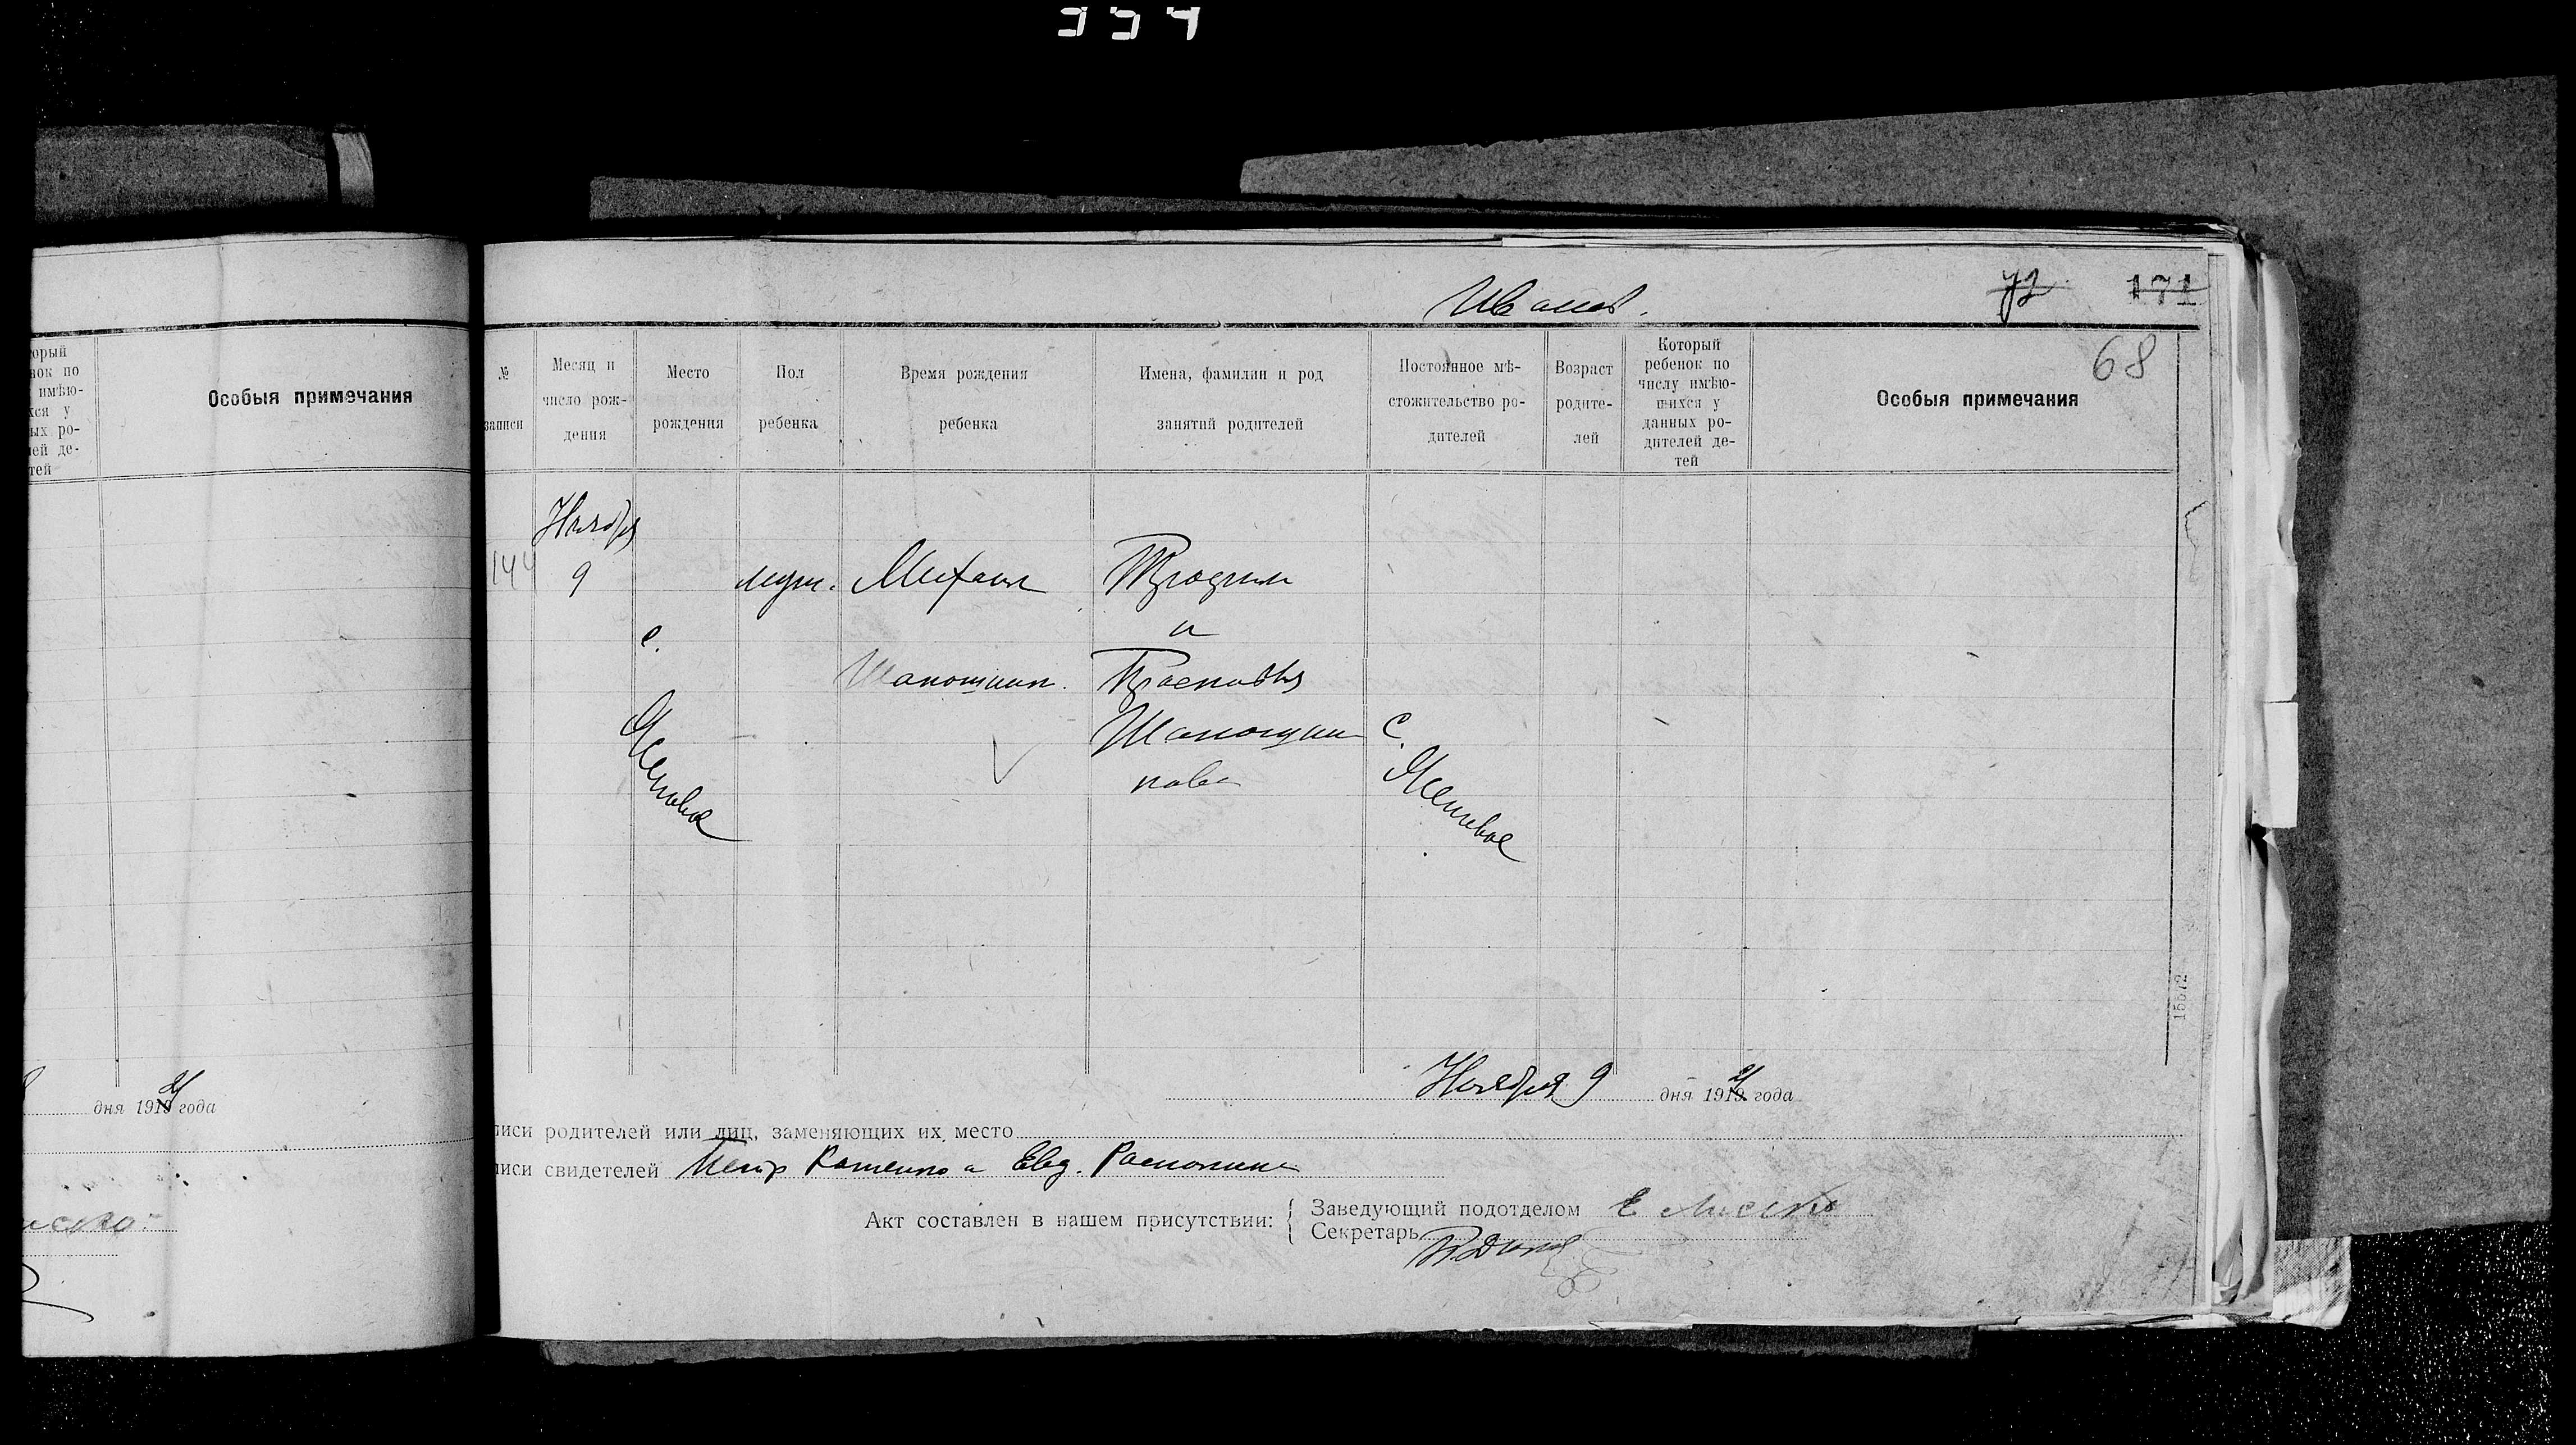 Иванов.
72
171
68
орый
нок по
имѣю-
хся у
ых ро-
лей де-
тей
Особыя примечания
№
записи
Месяц и
число рож-
дения
Место
рождения
Пол
ребенка
Время рождения
ребенка
Имена, фамилии и род
занятий родителей
Постоянное мѣ-
стожительство ро-
дителей
Возраст
родите-
лей
Который
ребенок по
числу имѣю-
шихся у
данных ро-
дителей де-
тей
Особыя примечания
Ноября
144
9
муж.
Михаил
и
с.
Ясеновое
Прасковья
с.
Ясеновое
дня 1919 года
21
Ноября 9 дня 1919 года
21
иси родителей или лиц, заменяющих их место
иси свидетелей Петр и Евд.
Акт составлен в нашем присутствии:
Заведующий подотделом
Секретарь
15572